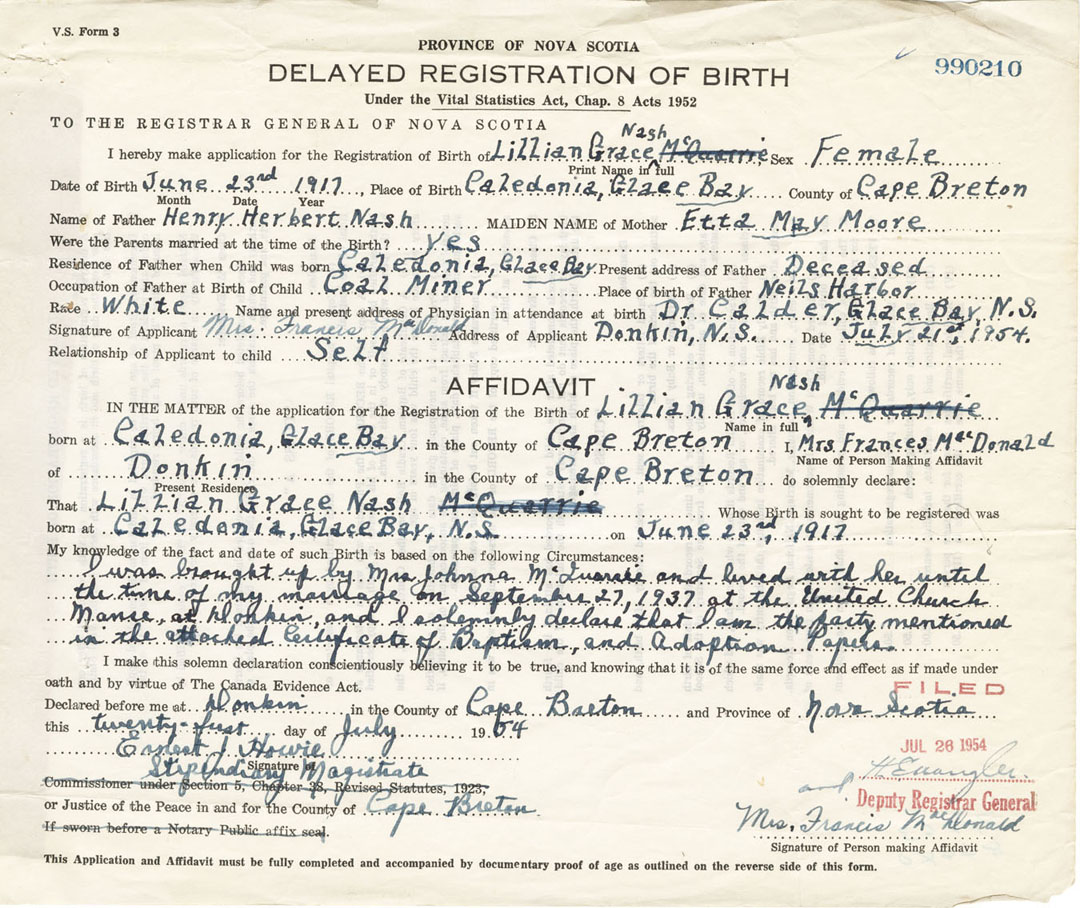 V.S. Form 3
PROVINCE OF NOVA SCOTIA
990210
DELAYED REGISTRATION OF BIRTH
Under the Vital Statistics Act, Chap. 8 Acts 1952
TO THE REGISTRAR GENERAL OF NOVA SCOTIA
Nash
I hereby make application for the Registration of Birth of Lillian Grace McQuarrie Sex Female
Print Name in full
Date of Birth June 23rd 1917, Place of Birth Caledonia, Glace Bay County of Cape Breton
Month Date Year
Name of Father Henry Herbert Nash MAIDEN NAME of Mother Etta May Moore
Were the Parents married at the time of the Birth? yes
Residence of Father when Child was born Caledonia, Glace Bay Present address of Father Deceased
Occupation of Father at Birth of Child Coal Miner Place of birth of Father Neils Harbor
Race White Name and present address of Physician in attendance at birth Dr. Calder, Glace Bay, N.S.
Signature of Applicant Mrs. Francis MacDonald Address of Applicant Donkin, N.S. Date July 21st, 1954.
Relationship of Applicant to child Self
AFFIDAVIT
Nash
IN THE MATTER of the application for the Registration of the Birth of Lillian Grace, McQuarrie
Name in full
born at Caledonia, Glace Bay in the County of Cape Breton I, Mrs. Frances MacDonald
Name of Person Making Affidavit
of Donkin in the County of Cape Breton do solemnly declare:
Present Residence
That Lillian Grace Nash McQuarrie Whose Birth is sought to be registered was
born at Caledonia, Glace Bay, N.S. on June 23rd, 1917
My knowledge of the fact and date of such Birth is based on the following Circumstances:
I was brought up by Mrs Johnna McQuarrie and lived with her until
the time of my marriage on September 27, 1937 at the United Church
Manse, at Donkin, and I solemnly declare that I am the party mentioned
in the attached Certificate of Baptism, and Adoption Papers.
I make this solemn declaration conscientiously believing it to be true, and knowing that it is of the same force and effect as if made under
oath and by virtue of The Canada Evidence Act.
FILED
Declared before me at Donkin in the County of Cape Breton and Province of Nova Scotia
this twenty-first day of July 1954
JUL 26 1954
Ernest J Howie
Signature of
Stipendiary Magistrate
Commissioner under Section 5, Chapter 38, Revised Statutes, 1923,
and
Deputy Registrar General
or Justice of the Peace in and for the County of Cape Breton
Mrs. Francis MacDonald
If sworn before a Notary Public affix seal.
Signature of Person making Affidavit
This Application and Affidavit must be fully completed and accompanied by documentary proof of age as outlined on the reverse side of this form.